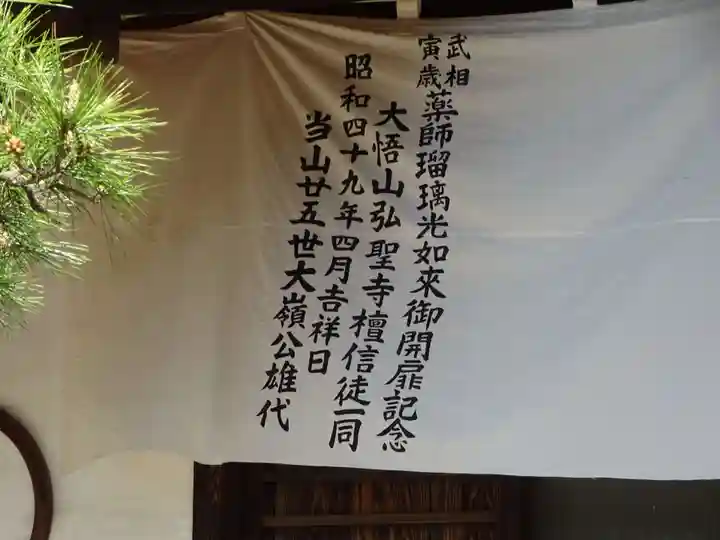 武相寅歳薬師瑠璃光如來御開扉記念
大悟山弘聖寺檀信徒一同
昭和四十九年四月吉祥日
当山廿五世大嶺公雄代